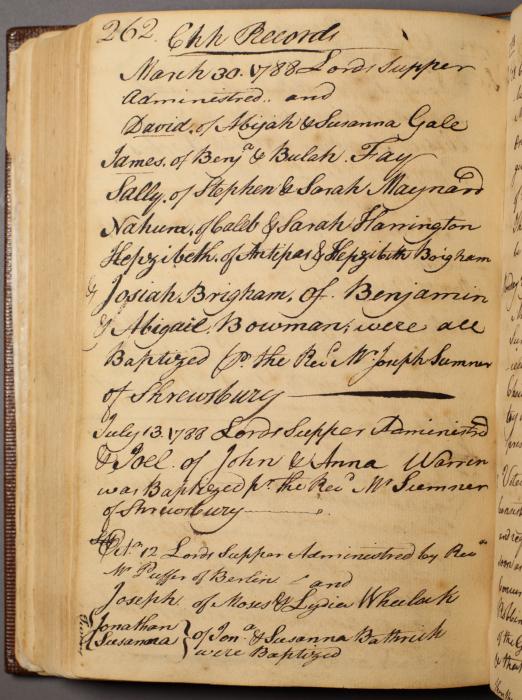 262. Chh Records
March 30. 1788 Lords Supper
Administred.. and
David. of Abijah & Susanna Gale
James. of Benja & Bulah. Fay
Sally. of Stephen & Sarah Maynard
Nahum. of Caleb & Sarah Harrington
Hepzibeth. of Antipas & Hepzibeth Brigham
& Josiah Brigham. of Benjamin
& Abigail Bowman; were all
Baptized pr. the Revd Mr. Joseph Sumner
of Shrewsbury
July 13. 1788 Lords Supper Administred
& Joel. of John & Anna Warrin
was Baptized pr. the Revd Mr Sumner
of Shrewsbury
Octr. 12 Lords Supper Administred by Revd
Mr Puffer of Berlin and
Joseph of Moses & Lydia Wheelock
Jonathan
Susanna } of Jona & Susanna Bathrick
were Baptized